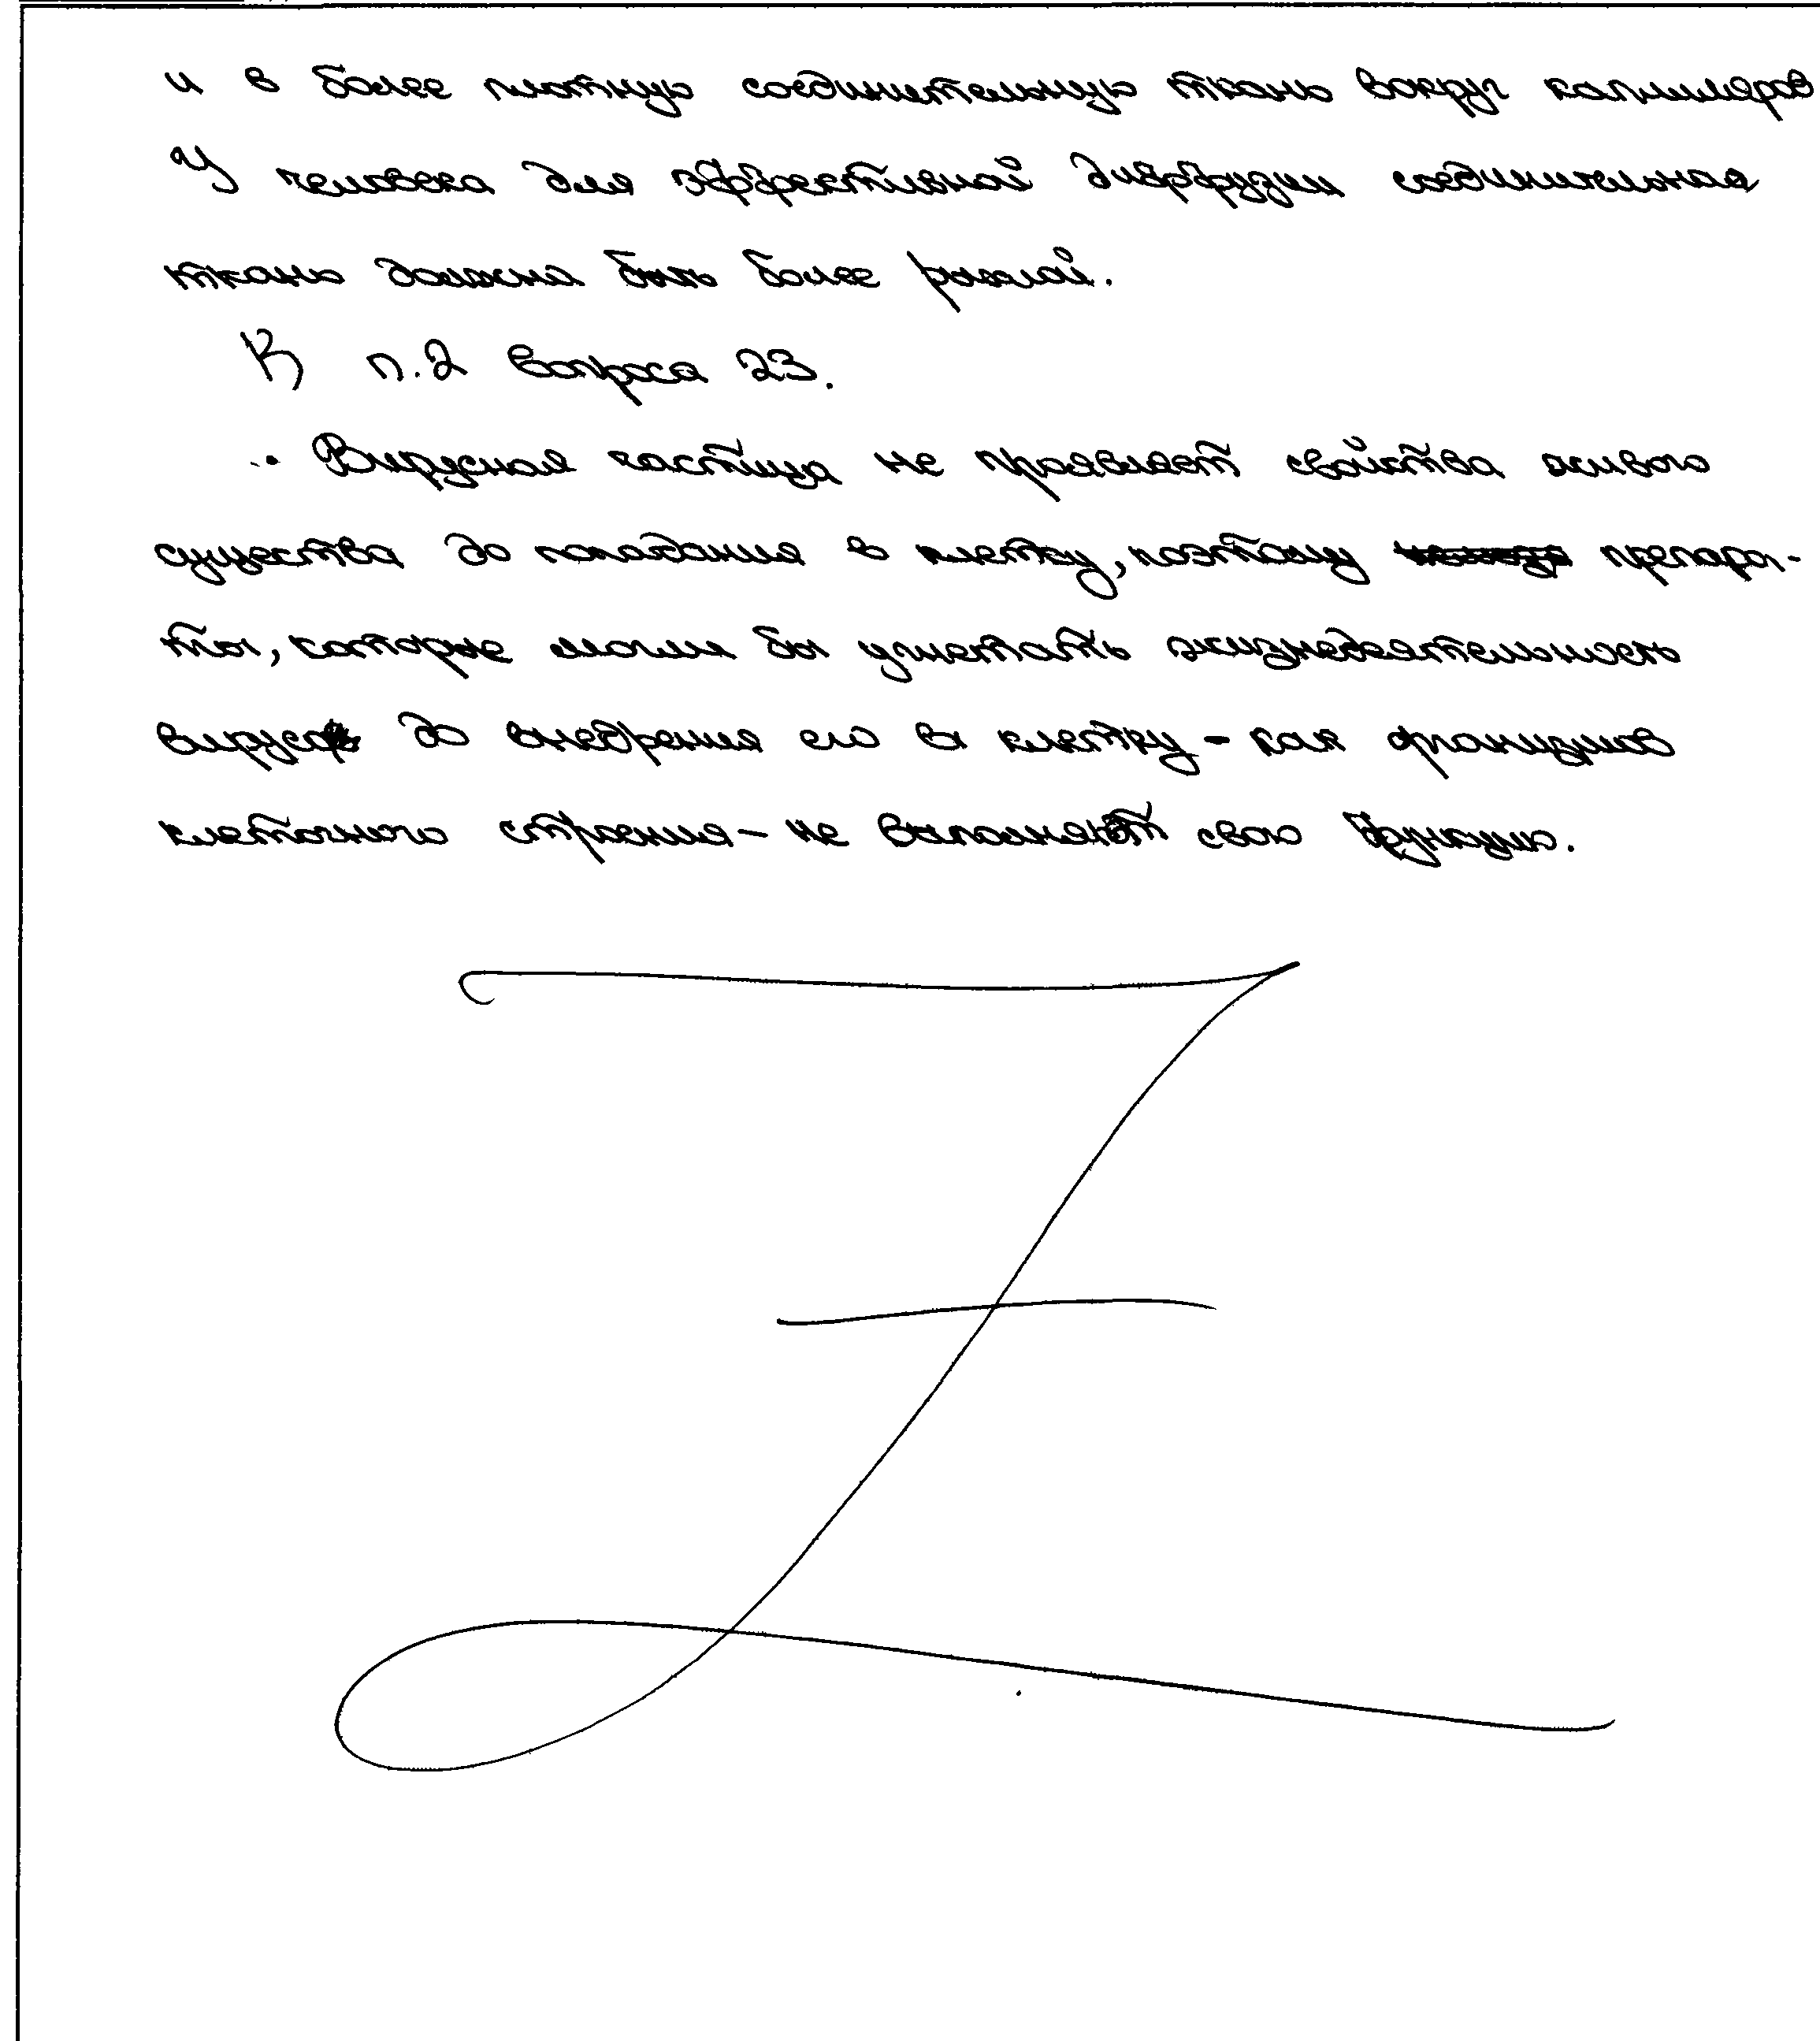 и в более плотную соединительную ткань вокруг капилляров
У человека для эффективной диффузии соединительная
ткань должна быть более рыхлой.
К п.2 вопроса 23.
Вирусная частица не проявляет свойства живого
существа до попадания в клетку, поэтому препара-
ты, которые могли бы угнетать жизнедеятельность
вируса до внедрения его в клетку - как организмов
клеточного строения - не выполняют свою функцию.